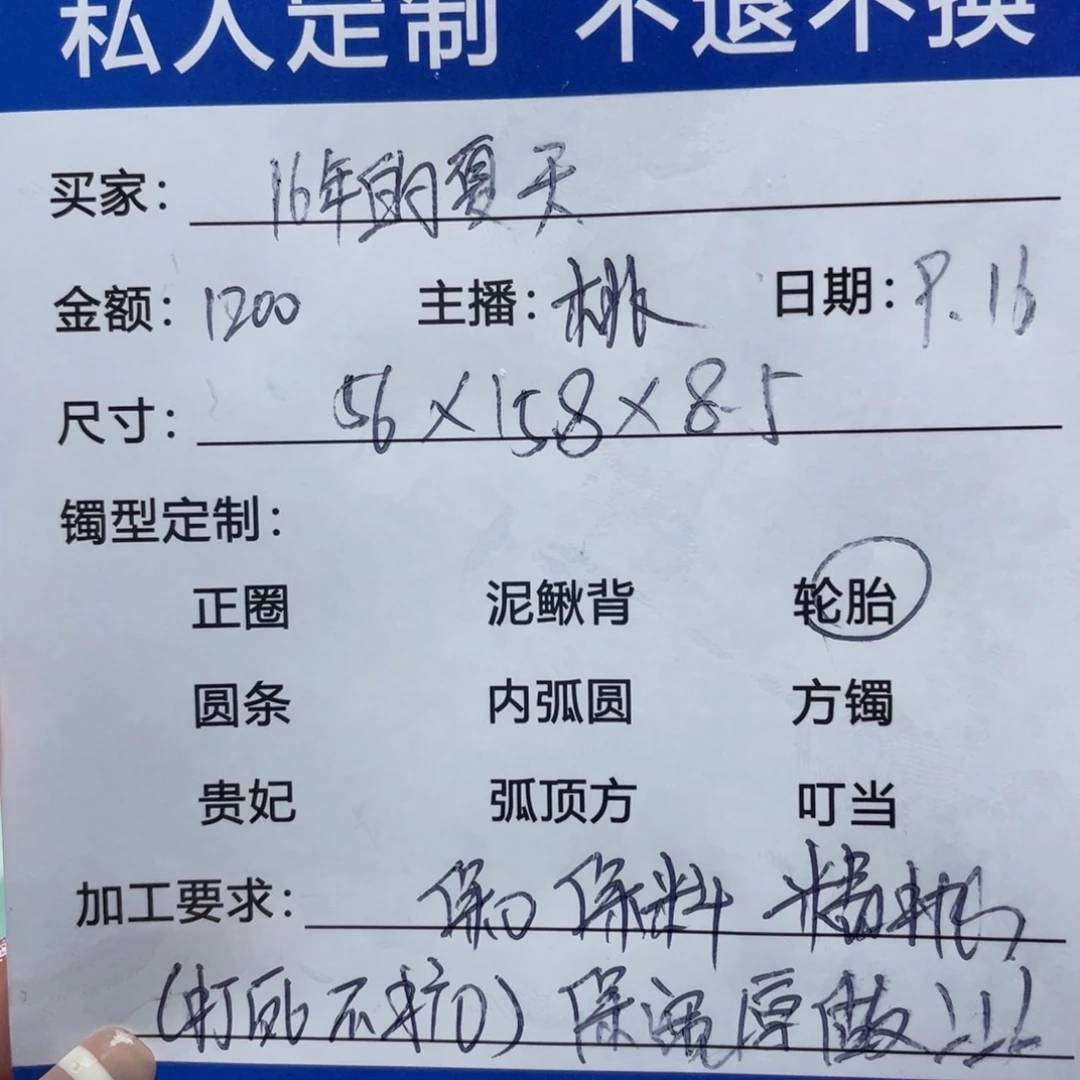 私人定制 不退不换
买家: 16年的夏天
金额: 1200 主播: 桃 日期: 9.16
尺寸: 56×158×8.5
镯型定制:
正圈 泥鳅背 轮胎
圆条 内弧圆 方镯
贵妃 弧顶方 叮当
加工要求: 保 保料 精
(打 不 ) 保 厚